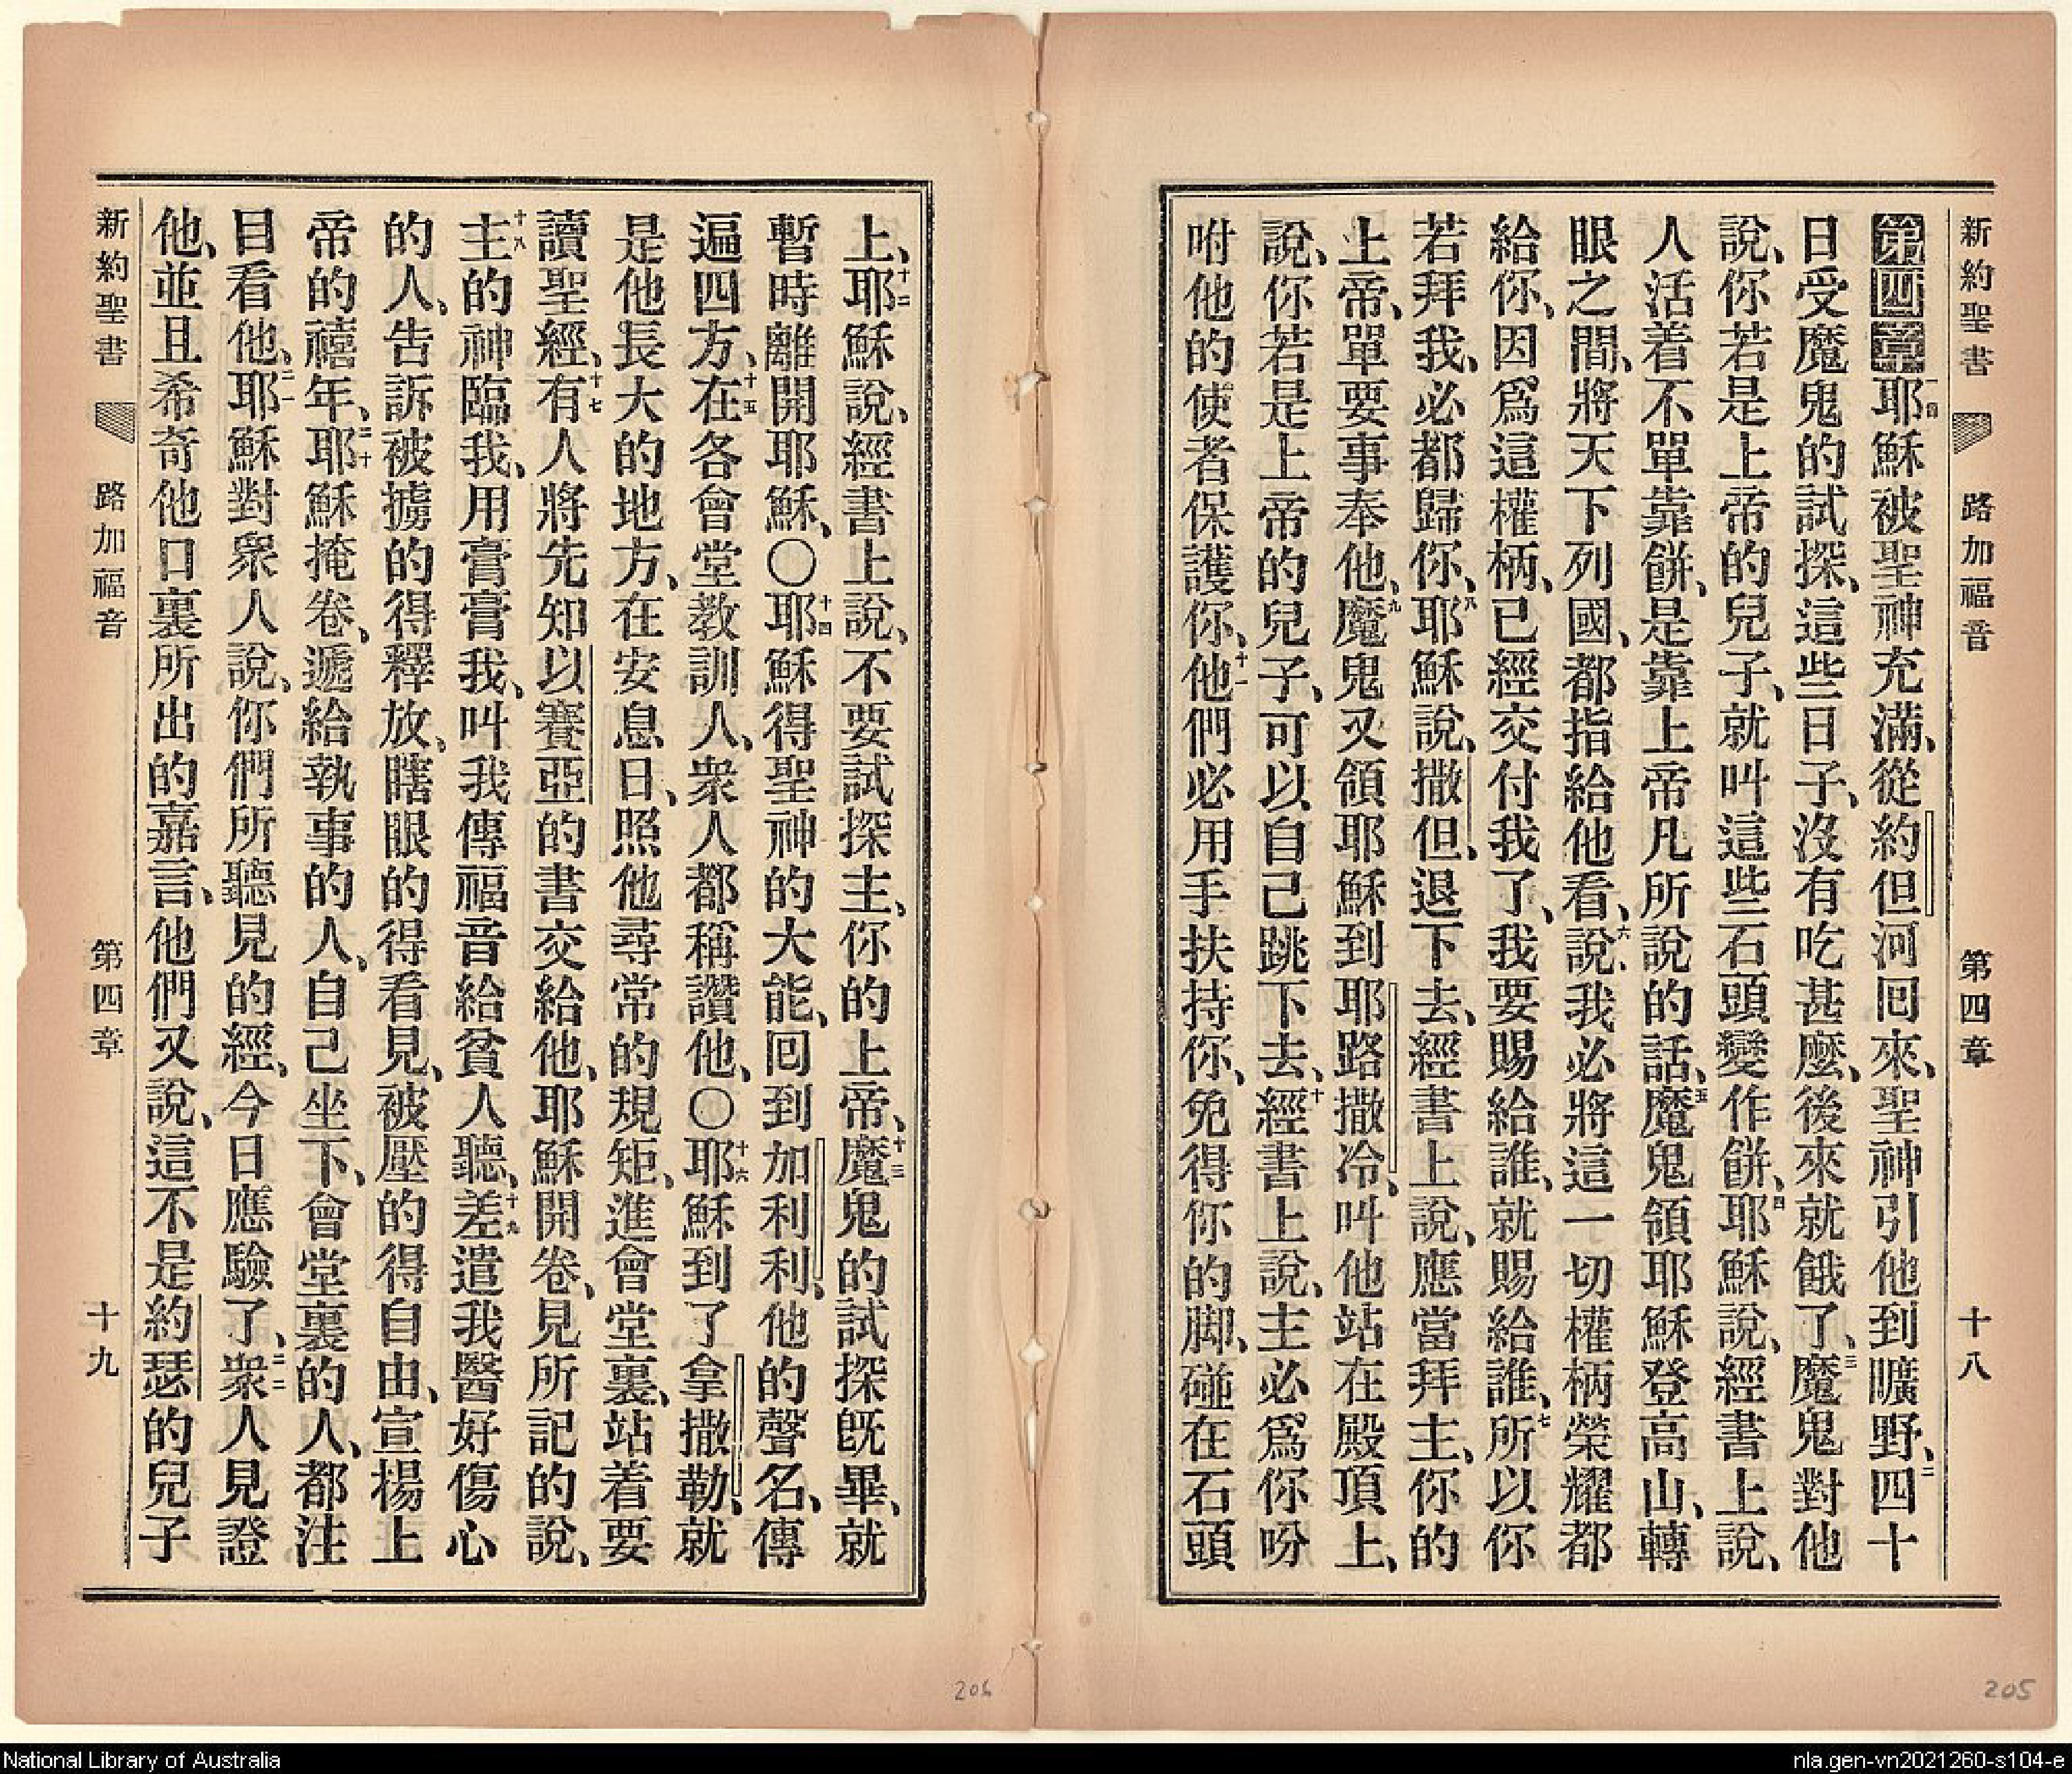 新約聖書 路加福音 第四章 十八
第四章一耶穌被聖神充滿、從約但河囘來、聖神引他到曠野、二四十
日受魔鬼的試探、這些日子、沒有吃甚麼、後來就餓了、三魔鬼對他
說、你若是上帝的兒子、就叫這些石頭變作餅、四耶穌說、經書上說、
人活着不單靠餅、是靠上帝凡所說的話、五魔鬼領耶穌登高山、轉
眼之間、將天下列國、都指給他看、六說、我必將這一切權柄榮耀都
給你、因爲這權柄、已經交付我了、我要賜給誰、就賜給誰、七所以你
若拜我、必都歸你、八耶穌說、撒但、退下去、經書上說、應當拜主、你的
上帝、單要事奉他、九魔鬼又領耶穌到耶路撒冷、叫他站在殿頂上、
說、你若是上帝的兒子、可以自己跳下去、十經書上說、主必爲你吩
咐他的使者保護你、十一他們必用手扶持你、免得你的脚、碰在石頭
上、十二耶穌說、經書上說、不要試探主、你的上帝、十三魔鬼的試探旣畢、就
暫時離開耶穌、〇十四耶穌得聖神的大能、囘到加利利、他的聲名、傳
遍四方、十五在各會堂教訓人、衆人都稱讚他、〇十六耶穌到了拿撒勒、就
是他長大的地方、在安息日、照他尋常的規矩、進會堂裏、站着要
讀聖經、十七有人將先知以賽亞的書交給他、耶穌開卷、見所記的說、
十八主的神臨我、用膏膏我、叫我傳福音給貧人聽、十九差遣我醫好傷心
的人、告訴被擄的得釋放、瞎眼的得看見、被壓的得自由、宣揚上
帝的禧年、二十耶穌掩卷、遞給執事的人、自己坐下、會堂裏的人、都注
目看他、二一耶穌對衆人說、你們所聽見的經、今日應驗了、二二衆人見證
他、並且希奇他口裏所出的嘉言、他們又說、這不是約瑟的兒子
新約聖書 路加福音 第四章 十九
206
205
National Library of Australia
nla.gen-vn2021260-s104-e